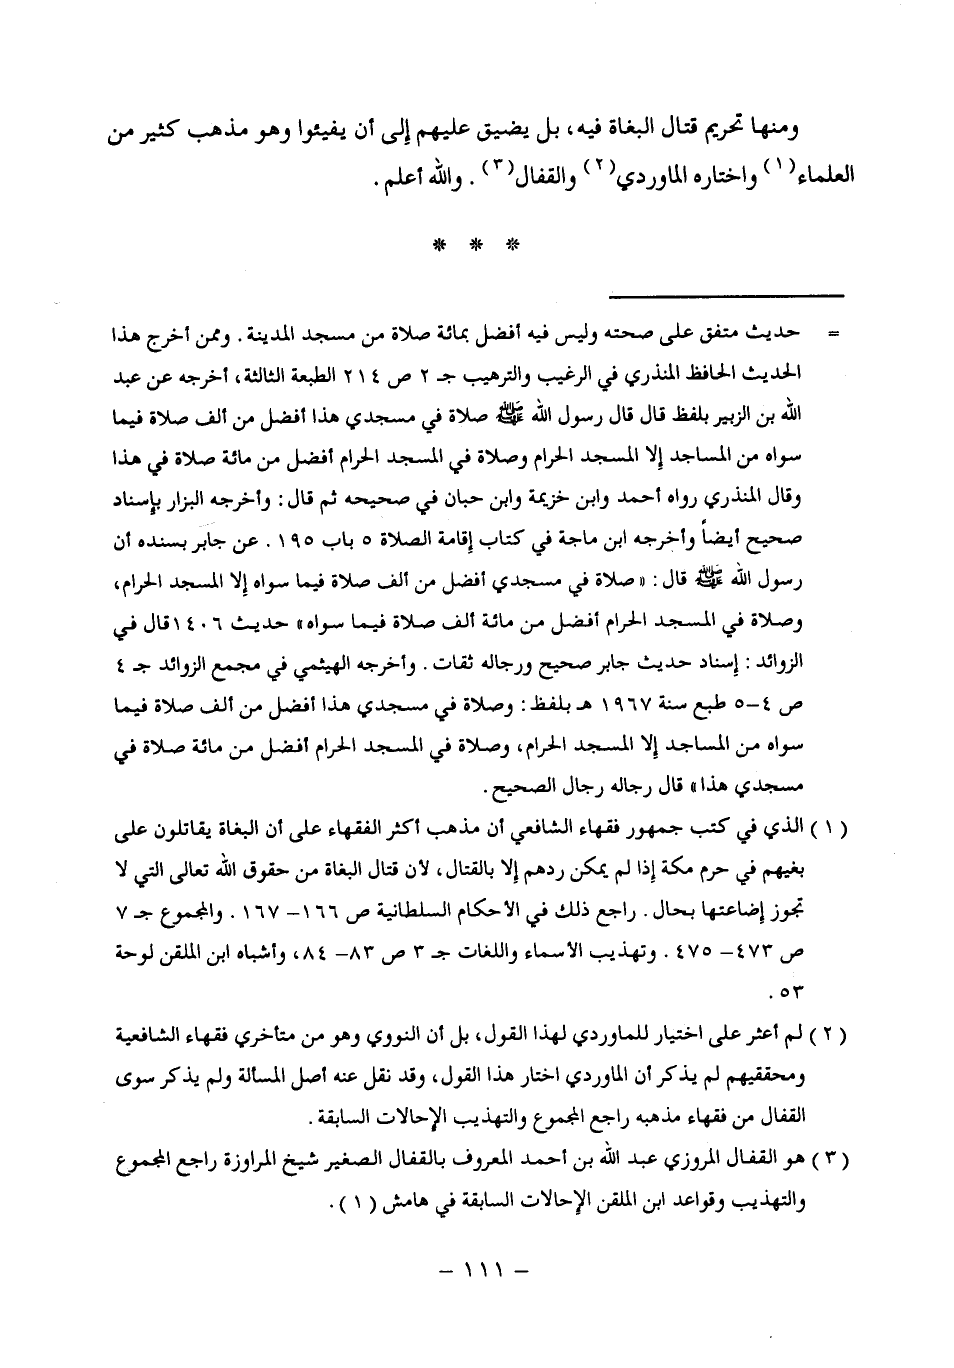 ومنها تحريم قتال البغاة فيه، بل يضيق عليهم إلى أن يفيئوا وهو مذهب كثير من
العلماء(١) واختاره الماوردي(٢) والقفال(٣) . والله أعلم .
* * *
= حديث متفق على صحته وليس فيه أفضل بمائة صلاة من مسجد المدينة . وممن أخرج هذا
الحديث الحافظ المنذري في الرغيب والترهيب جـ ٢ ص ٢١٤ الطبعة الثالثة، أخرجه عن عبد
الله بن الزبير بلفظ قال قال رسول الله ﷺ صلاة في مسجدي هذا أفضل من ألف صلاة فيما
سواه من المساجد إلا المسجد الحرام وصلاة في المسجد الحرام أفضل من مائة صلاة في هذا
وقال المنذري رواه أحمد وابن خزيمة وابن حبان في صحيحه ثم قال : وأخرجه البزار بإسناد
صحيح أيضاً وأخرجه ابن ماجة في كتاب إقامة الصلاة ٥ باب ١٩٥ . عن جابر بسنده أن
رسول الله ﷺ قال : « صلاة في مسجدي أفضل من ألف صلاة فيما سواه إلا المسجد الحرام،
وصلاة في المسجد الحرام أفضل من مائة ألف صلاة فيما سواه» حديث ١٤٠٦ قال في
الزوائد : إسناد حديث جابر صحيح ورجاله ثقات . وأخرجه الهيثمي في مجمع الزوائد جـ ٤
ص ٤-٥ طبع سنة ١٩٦٧ هـ بلفظ : وصلاة في مسجدي هذا أفضل من ألف صلاة فيما
سواه من المساجد إلا المسجد الحرام، وصلاة في المسجد الحرام أفضل من مائة صلاة في
مسجدي هذا» قال رجاله رجال الصحيح .
(١) الذي في كتب جمهور فقهاء الشافعي أن مذهب أكثر الفقهاء على أن البغاة يقاتلون على
بغيهم في حرم مكة إذا لم يمكن ردهم إلا بالقتال، لأن قتال البغاة من حقوق الله تعالى التي لا
تجوز إضاعتها بحال . راجع ذلك في الأحكام السلطانية ص ١٦٦- ١٦٧ . والمجموع جـ ٧
ص ٤٧٣- ٤٧٥ . وتهذيب الأسماء واللغات جـ ٣ ص ٨٣- ٨٤، وأشباه ابن الملقن لوحة
٥٣ .
(٢) لم أعثر على اختيار للماوردي لهذا القول، بل أن النووي وهو من متأخري فقهاء الشافعية
ومحققيهم لم يذكر أن الماوردي اختار هذا القول، وقد نقل عنه أصل المسألة ولم يذكر سوى
القفال من فقهاء مذهبه راجع المجموع والتهذيب الإحالات السابقة .
(٣) هو القفال المروزي عبد الله بن أحمد المعروف بالقفال الصغير شيخ المراوزة راجع المجموع
والتهذيب وقواعد ابن الملقن الإحالات السابقة في هامش (١) .
- ١١١ -